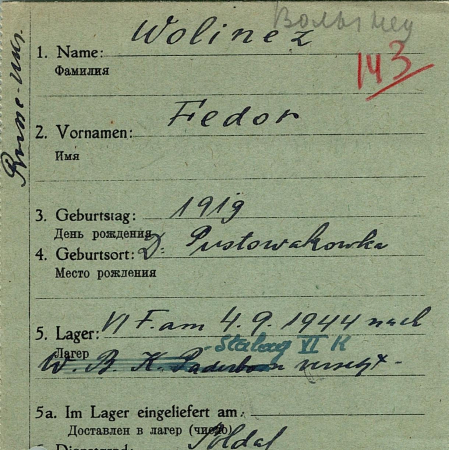 Wolinez
Волынец
1. Name:
Фамилия
143
Fedor
2. Vornamen:
Имя
1919
3. Geburtstag:
День рождения
D. Pustowakowka
4. Geburtsort:
Место рождения
VI F. am 4.9.1944 nach
5. Lager:
Stalag VI K
Лагерь
W. B. K. Paderborn versetzt -
5a. Im Lager eingeliefert am:
Доставлен в лагерь (число)
Soldat
6. Dienstgrad: